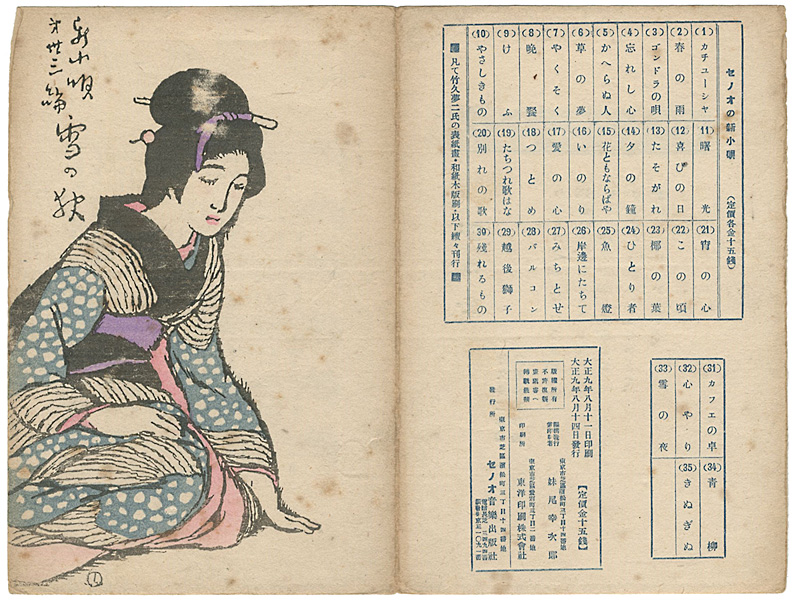 新小唄
第卅三篇
雪の夜
セノオの新小唄 (定價各金十五錢)
(1) カチユーシヤ (11) 曙光 (21) 宵の心
(2) 春の雨 (12) 喜びの日 (22) この頃
(3) ゴンドラの唄 (13) たそがれ (23) 椰の葉
(4) 忘れし心 (14) 夕の鐘 (24) ひとり者
(5) かへらぬ人 (15) 花ともならばや (25) 魚燈
(6) 草の夢 (16) いのり (26) 岸邊にたちて
(7) やくそく (17) 愛の心 (27) みちとせ
(8) 晩餐 (18) つとめ (28) バルコン
(9) けふ (19) たちつれ歌はな (29) 越後獅子
(10) やさしきもの (20) 別れの歌 (30) 残れるもの
凡て竹久夢二氏の表紙畫・和紙木版刷・以下續々刊行
(31) カフエの卓 (34) 青柳
(32) 心やり (35) きぬぎぬ
(33) 雪の夜
大正九年八月十一日印刷
大正九年八月十四日發行 【定價金十五錢】
版權所有
不許複製
妹尾幸次郎
印刷所 東洋印刷株式會社
發行所
セノオ音樂出版社